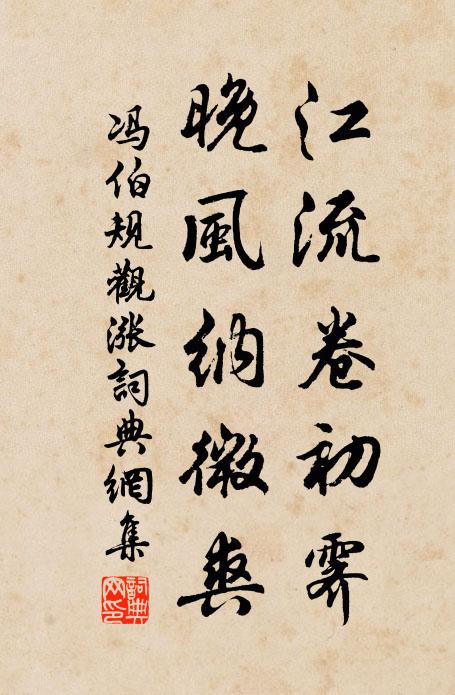 江流卷初霽
晚風納微爽
冯伯規觀漲詞典網集
詞典網印